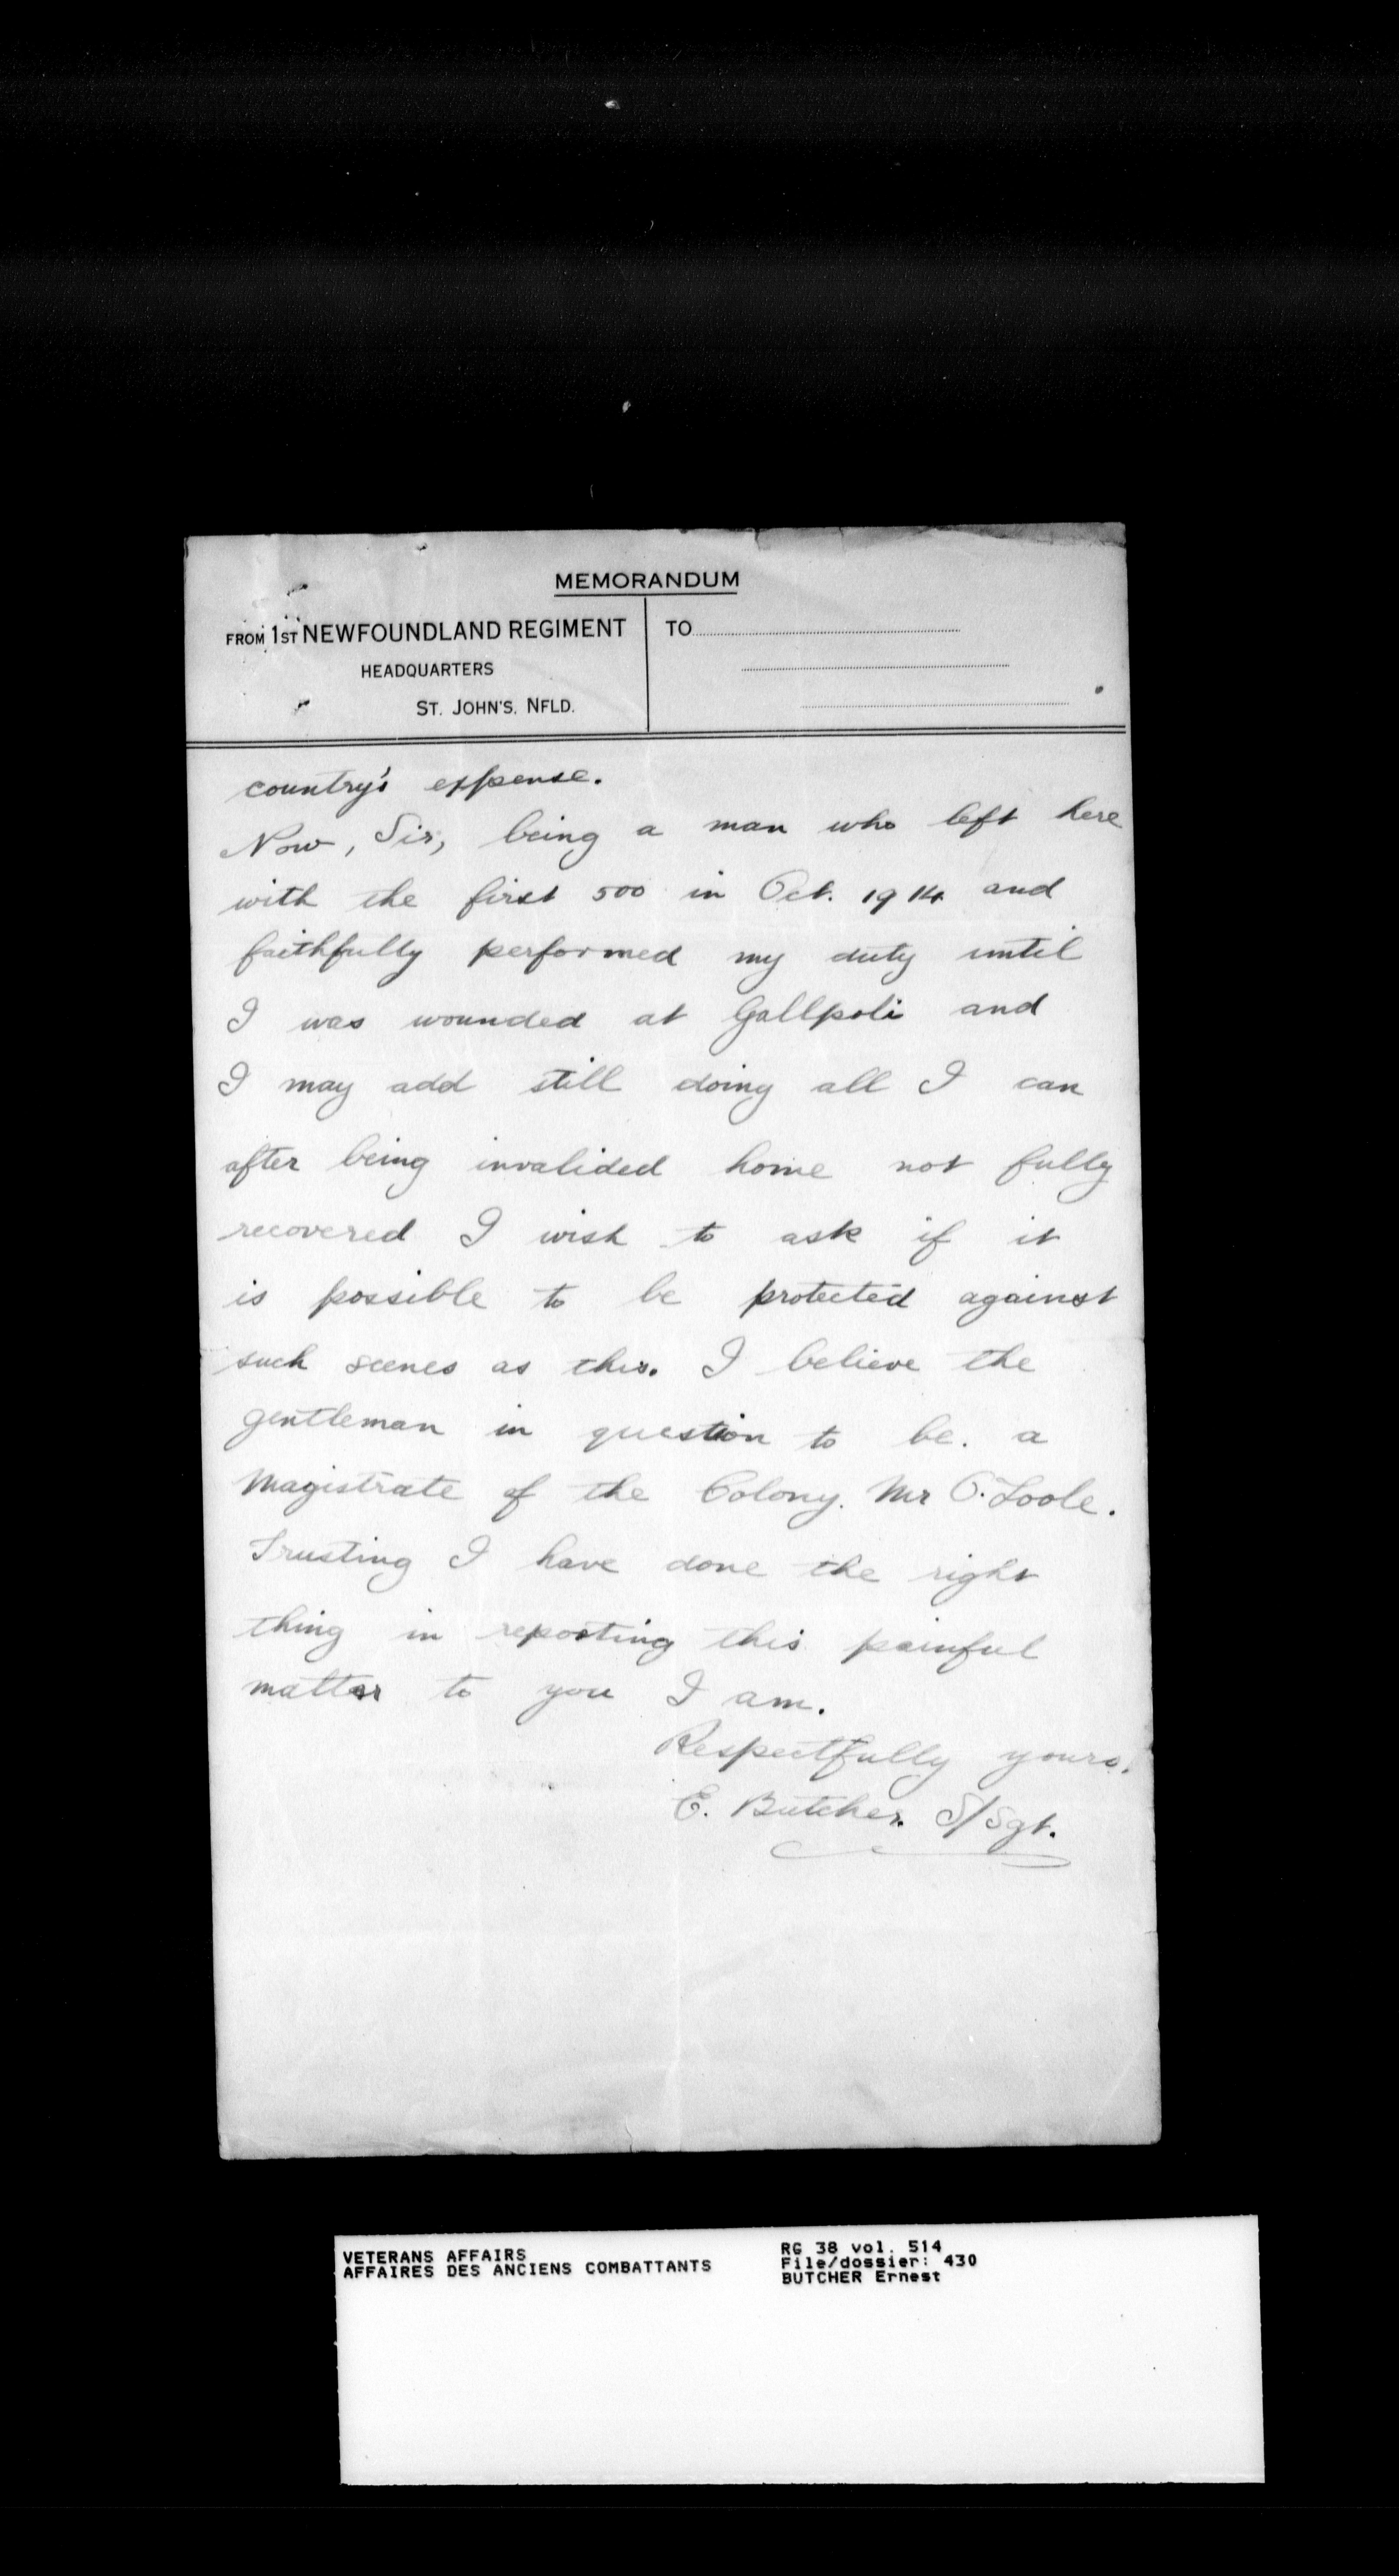 MEMORANDUM
FROM 1ST NEWFOUNDLAND REGIMENT
HEADQUARTERS
ST. JOHN'S, NFLD.
TO
country's expense.
Now, Sir, being a man who left here
with the first 500 in Oct. 1914 and
faithfully performed my duty until
I was wounded at Gallpoli and
I may add still doing all I can
after being invalided home not fully
recovered I wish to ask if it
is possible to be protected against
such scenes as this. I believe the
gentleman in question to be. a
Magistrate of the Colony. Mr O. Toole.
Trusting I have done the right
thing in reporting this painful
matter to you I am.
Respectfully yours.
E. Butcher. S/Sgt.
VETERANS AFFAIRS
AFFAIRES DES ANCIENS COMBATTANTS
RG 38 vol. 514
File/dossier: 430
BUTCHER Ernest